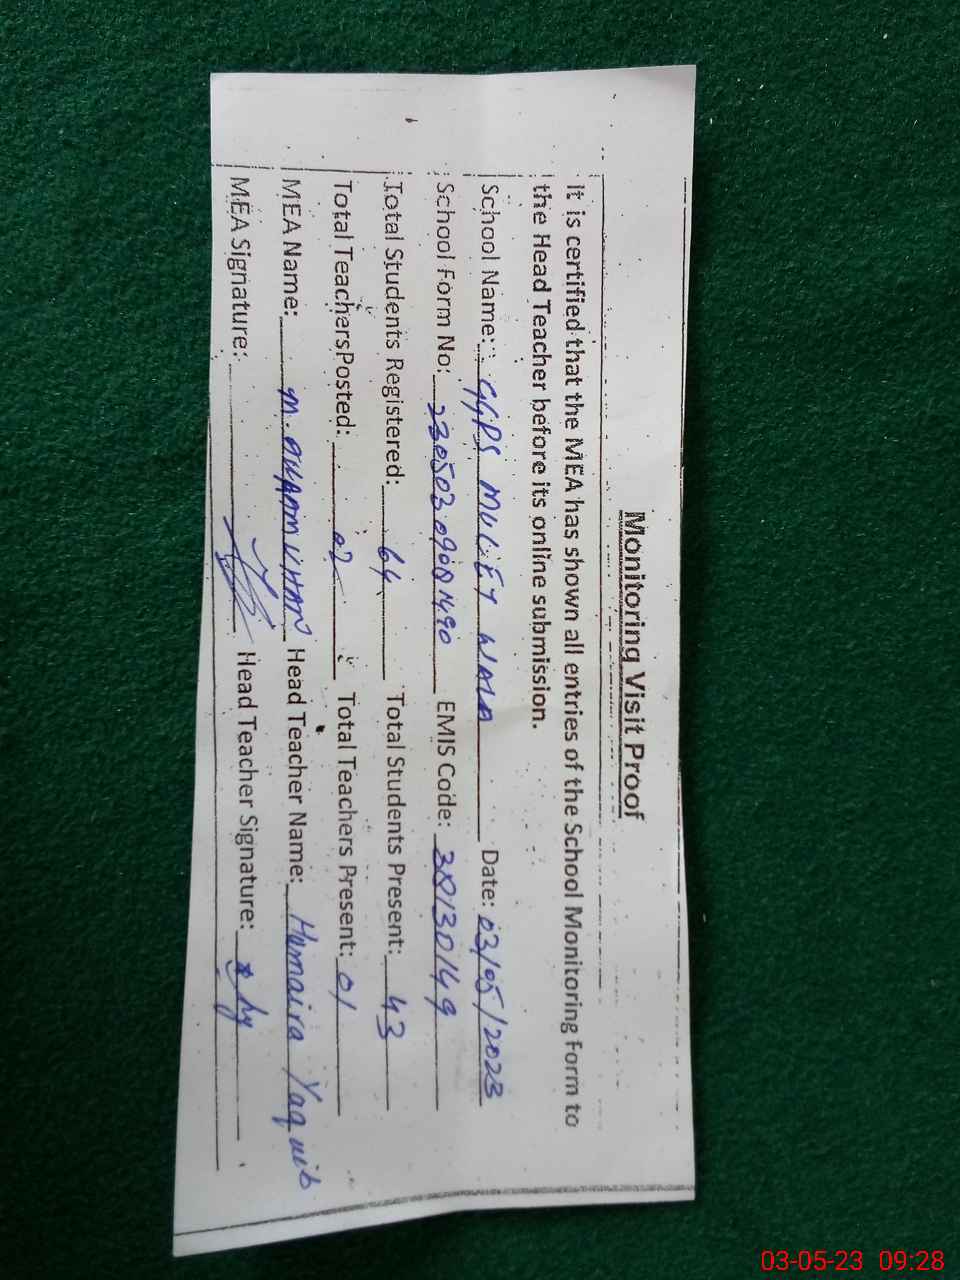 Monitoring Visit Proof
It is certified that the MEA has shown all entries of the School Monitoring Form to
the Head Teacher before its online submission.
School Name: GGPS MULEY WALA Date: 03/05/2023
School Form No: 230503090814.90 EMIS Code: 38130149
Total Students Registered: 64 Total Students Present: 43
Total TeachersPosted: 02 Total Teachers Present: 01
MEA Name: M. KHAN Head Teacher Name: Homaira Yaquib
MEA Signature: Head Teacher Signature:
03-05-23 09:28